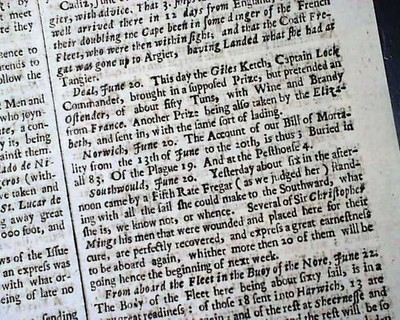 Cadiz, June
meet
gier, with advice. That 3.
ere they
well arrived there in 12 days from England
their doubling the Cape been in some danger of the French
Fleet, who were then within sight, and that the Coast Fre-
gat was gone up to Argier, having Landed what she had at
sence to
Tangier.
ollow the
Deal, June 20. This day the Giles Ketch, Captain Lock
Commander, brought in a supposed Prize, but pretended an
Men and
Ostender, of about fifty Tuns, with Wine and Brandy
ho joyn-
from France. Another Prize being also taken by the Eliza-
ate, a con-
beth, and sent in, with the same sort of lading.
y it, being
Norwich, June 20. The Account of our Bill of Morta-
gainst them.
lity from the 13th of June to the 20th, is thus; Buried in
lado de Ni-
all 83. Of the Plague 19. And at the Pesthouse 4.
eros (with-
Southwould, June 20. Yesterday about six in the after-
ve taken and
noon came by a Fifth Rate Fregat (as we judged her) stand-
St. Lucar de
ing with all the sail she could make to the Southward, what
ng away great
she is, we know not, or whence. Several of Sir Christopher
000 foot, and
Mings his men that were wounded and placed here for their
cure, are perfectly recovered, and express a great earnestness
ws of the Issue
to be aboard again, whither more then 20 of them will be
an express was
going hence the beginning of next week.
with what or-
From aboard the Fleet in the Buoy of the Nore, June 22.
being of late no
The Body of the Fleet here being about sixty sail, is in a
great readiness: of those 18 sent into Harwich, 13 are
sending
and of the rest at Sheernesse and
the rest will be so